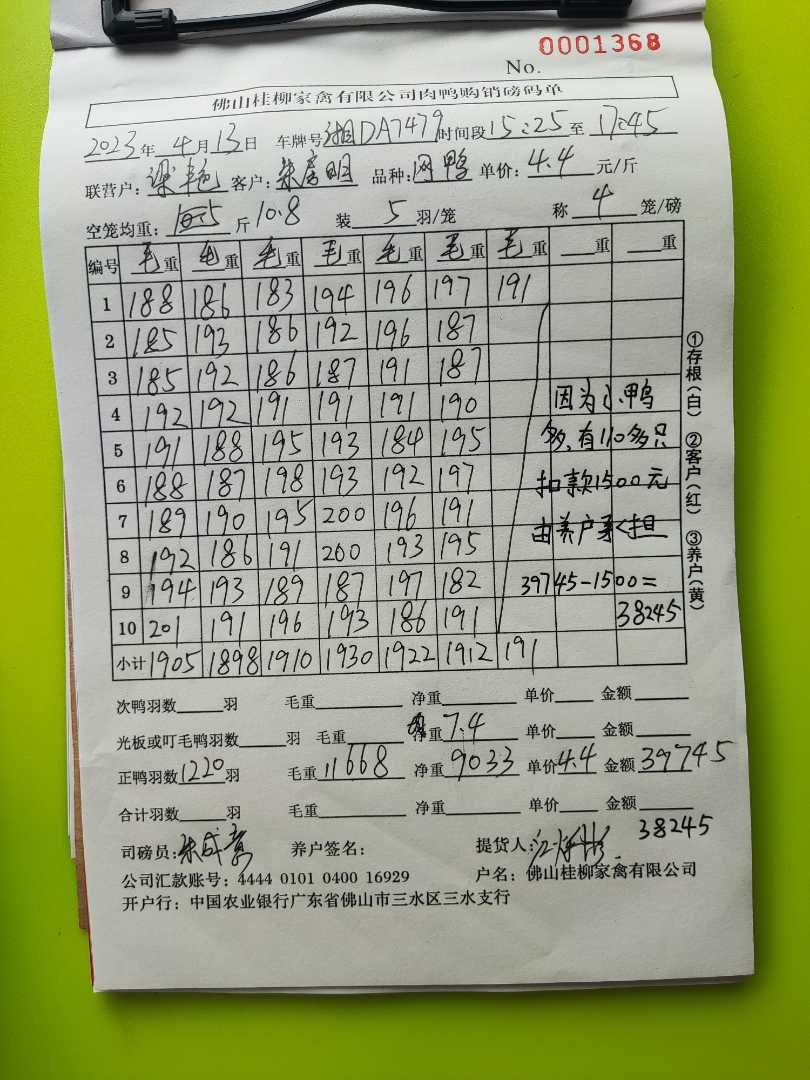 0001368
No.
佛山桂柳家禽有限公司肉鸭购销磅码单
2023年4月13日 车牌号湘DA7479时间段15:25至17:45
联营户:梁艳 客户:朱房明 品种:网鸭 单价:4.4元/斤
空笼均重: 斤10.8 装5羽/笼 称4笼/磅
编号 毛重 毛重 毛重 毛重 毛重 毛重 毛重 重 重
1 188 186 183 194 196 197 191
2 185 193 186 192 196 187
3 185 192 186 187 191 187
4 192 192 191 191 191 190
5 191 188 195 193 184 195
6 188 187 198 193 192 197
7 189 190 195 200 196 191
8 192 186 191 200 193 195
9 194 193 189 187 197 182
10 201 191 196 193 186 191
小计 1905 1898 1910 1930 1922 1912 191
因为小鸭
多,有110多只
扣款1500元
由养户承担
39745-1500=
38245
①存根(白) ②客户(红) ③养户(黄)
次鸭羽数 羽 毛重 净重 单价 金额
光板或叮毛鸭羽数 羽 毛重 净重7.4 单价 金额
正鸭羽数1220羽 毛重11668 净重9033 单价4.4 金额39745
合计羽数 羽 毛重 净重 单价 金额
38245
司磅员: 养户签名: 提货人:
公司汇款账号:4444 0101 0400 16929 户名:佛山桂柳家禽有限公司
开户行:中国农业银行广东省佛山市三水区三水支行